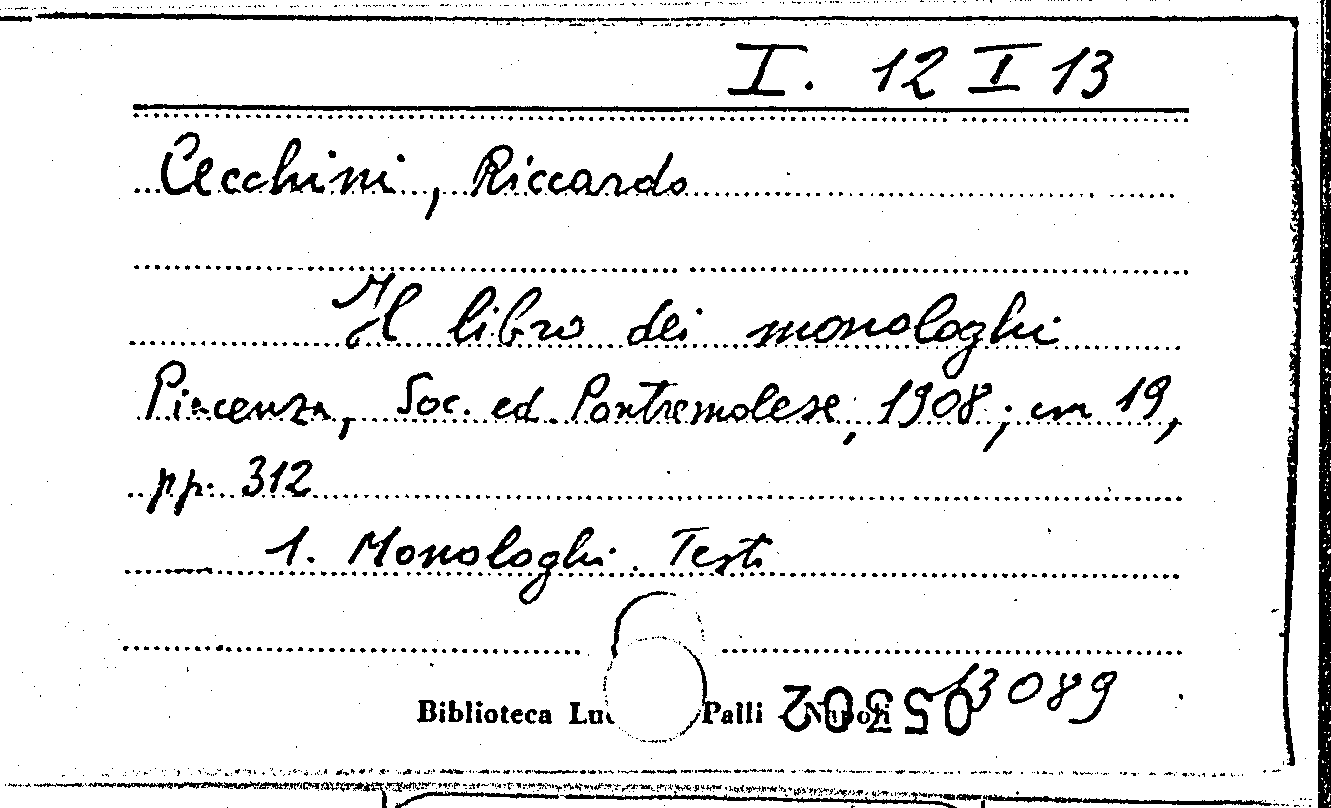 I. 12 I 13
Cecchini, Riccardo
Il libro dei monologhi
Piacenza, Soc. ed. Pontremolese, 1908; cm 19,
pp. 312
1. Monologhi. Testi
13089
Biblioteca Palli - Napoli
05302